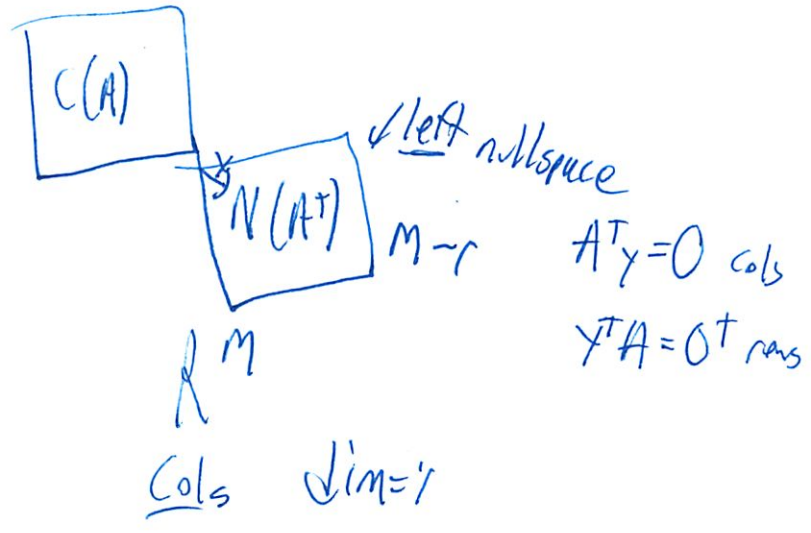 C(A)
↙ left nullspace
N(Aᵀ)
M-r
Aᵀy=0 cols
yᵀA=0ᵀ rows
Rᴹ
Cols dim=r